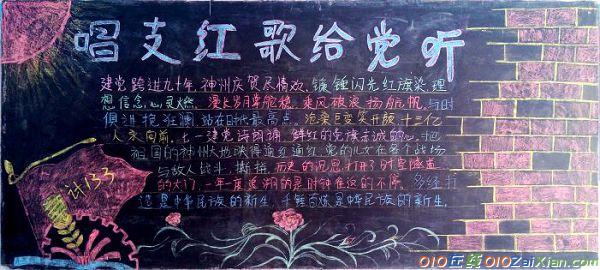 唱支红歌给党听
建党跨进九十年,神州庆贺尽情欢,镰锤闪光红旗染,理
想信念心灵燃。漫长岁月掌舵稳,乘风破浪扬航帆,与时
俱进挽狂澜,站在时代最高点。沧桑巨变笑开颜,十三亿
人永向前。七一建党诗朗诵,鲜红的党旗赤诚的心,把
祖国的神州大地染得通红通红,党的儿女在各个战场
与敌人战斗、撕拼,历史的沉思,打开了时空隧道
的大门,一年 的是时钟在这的不停。
是中华民族的新生,千锤百炼是中华民族的新生。
计133
010在线010ZaiXian.com